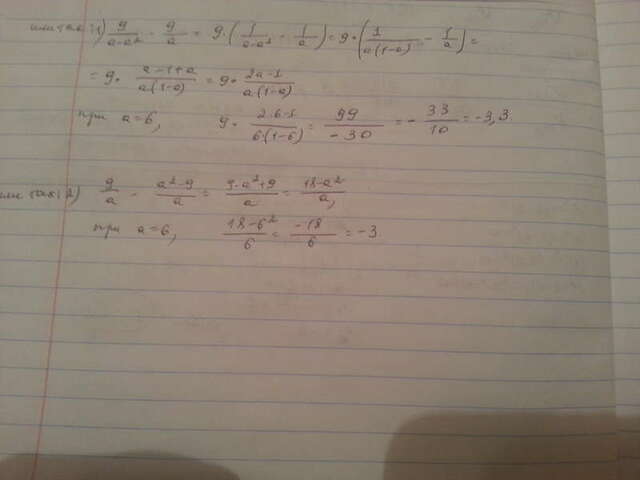 или так: 1) 9/(a-a²) - 9/a = 9·(1/(a-a²) - 1/a) = 9·(1/(a(1-a)) - 1/a) =
= 9· (a-1+a)/(a(1-a)) = 9· (2a-1)/(a(1-a))
при a=6, 9· (2·6-1)/(6·(1-6)) = 99/(-30) = - 33/10 = -3,3
или так: 2) 9/a - (a²-9)/a = (9-a²+9)/a = (18-a²)/a,
при a=6, (18-6²)/6 = (-18)/6 = -3